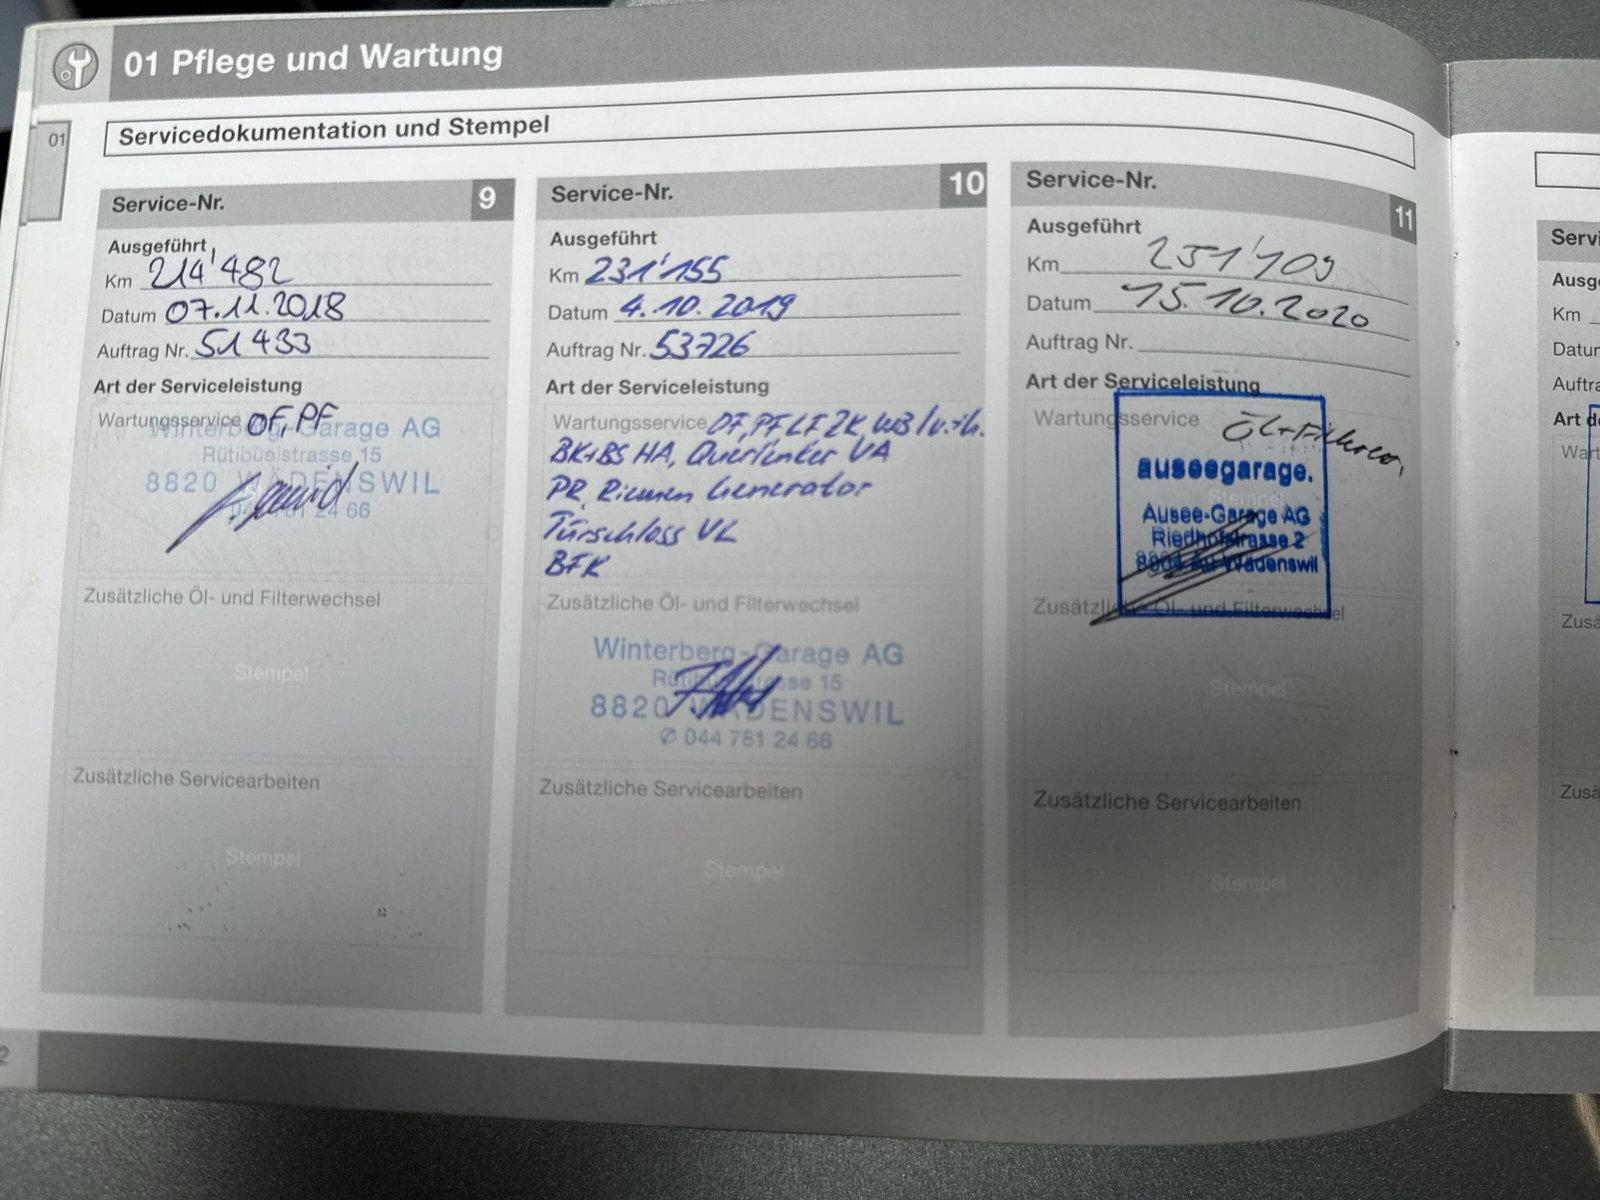 01 Pflege und Wartung
01
Servicedokumentation und Stempel
Service-Nr. 9
Ausgeführt
Km 214'482
Datum 07.11.2018
Auftrag Nr. 51433
Art der Serviceleistung
Wartungsservice OF, PF
Winterberg-Garage AG
Rütibüelstrasse 15
8820 WÄDENSWIL
044 781 24 66
Zusätzliche Öl- und Filterwechsel
Stempel
Zusätzliche Servicearbeiten
Stempel
Service-Nr. 10
Ausgeführt
Km 231'155
Datum 4.10.2019
Auftrag Nr. 53726
Art der Serviceleistung
Wartungsservice OF, PF LF ZK WB/v.+h.
BK+BS HA, Querlenker VA
PR, Riemen Generator
Türschloss VL
BFK
Zusätzliche Öl- und Filterwechsel
Winterberg-Garage AG
Rütibüelstrasse 15
8820 WÄDENSWIL
✆ 044 781 24 66
Zusätzliche Servicearbeiten
Stempel
Service-Nr. 11
Ausgeführt
Km 251'109
Datum 15.10.2020
Auftrag Nr.
Art der Serviceleistung
Wartungsservice Öl+Filter
auseegarage.
Stempel
Ausee-Garage AG
Riedhofstrasse 2
8804 Au Wädenswil
Zusätzliche Öl- und Filterwechsel
Stempel
Zusätzliche Servicearbeiten
Stempel
2
Servi
Ausg
Km
Datu
Auftra
Art d
Wart
Zusä
Zusä